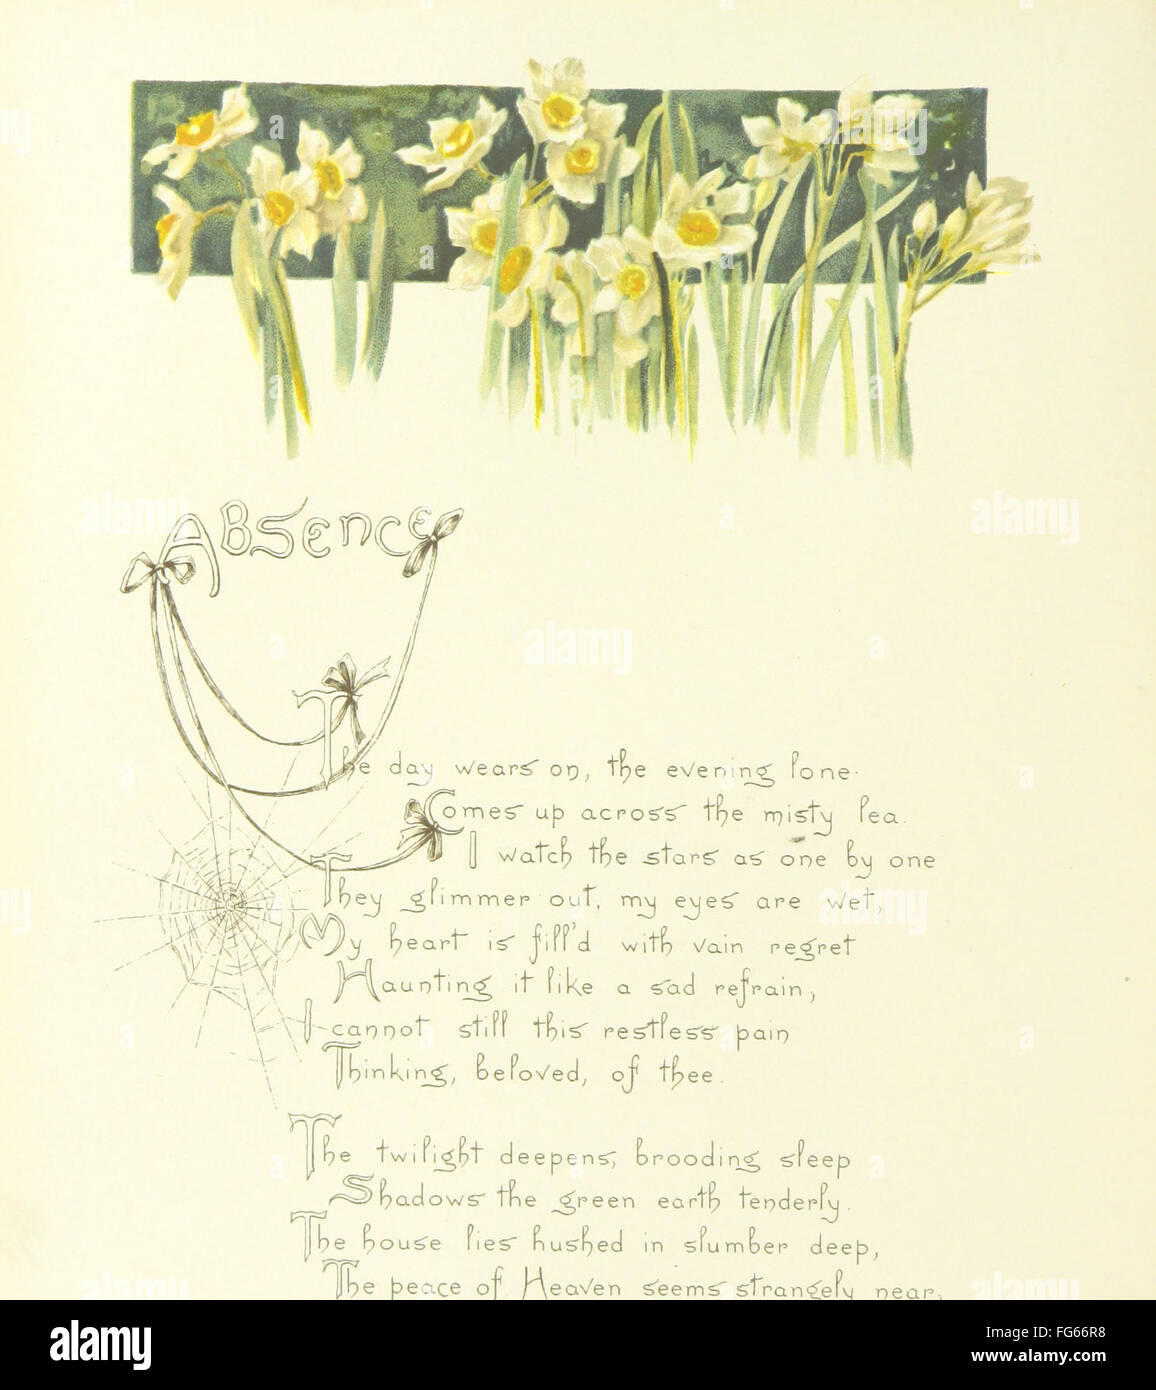 Absence
The day wears on, the evening lone.
Comes up across the misty lea.
I watch the stars as one by one
They glimmer out, my eyes are wet,
My heart is fill'd with vain regret
Haunting it like a sad refrain,
I cannot still this restless pain
Thinking, beloved, of thee.
The twilight deepens, brooding sleep
Shadows the green earth tenderly.
The house lies hushed in slumber deep,
The peace of Heaven seems strangely near,
alamy
Image ID: FG66R8
www.alamy.com